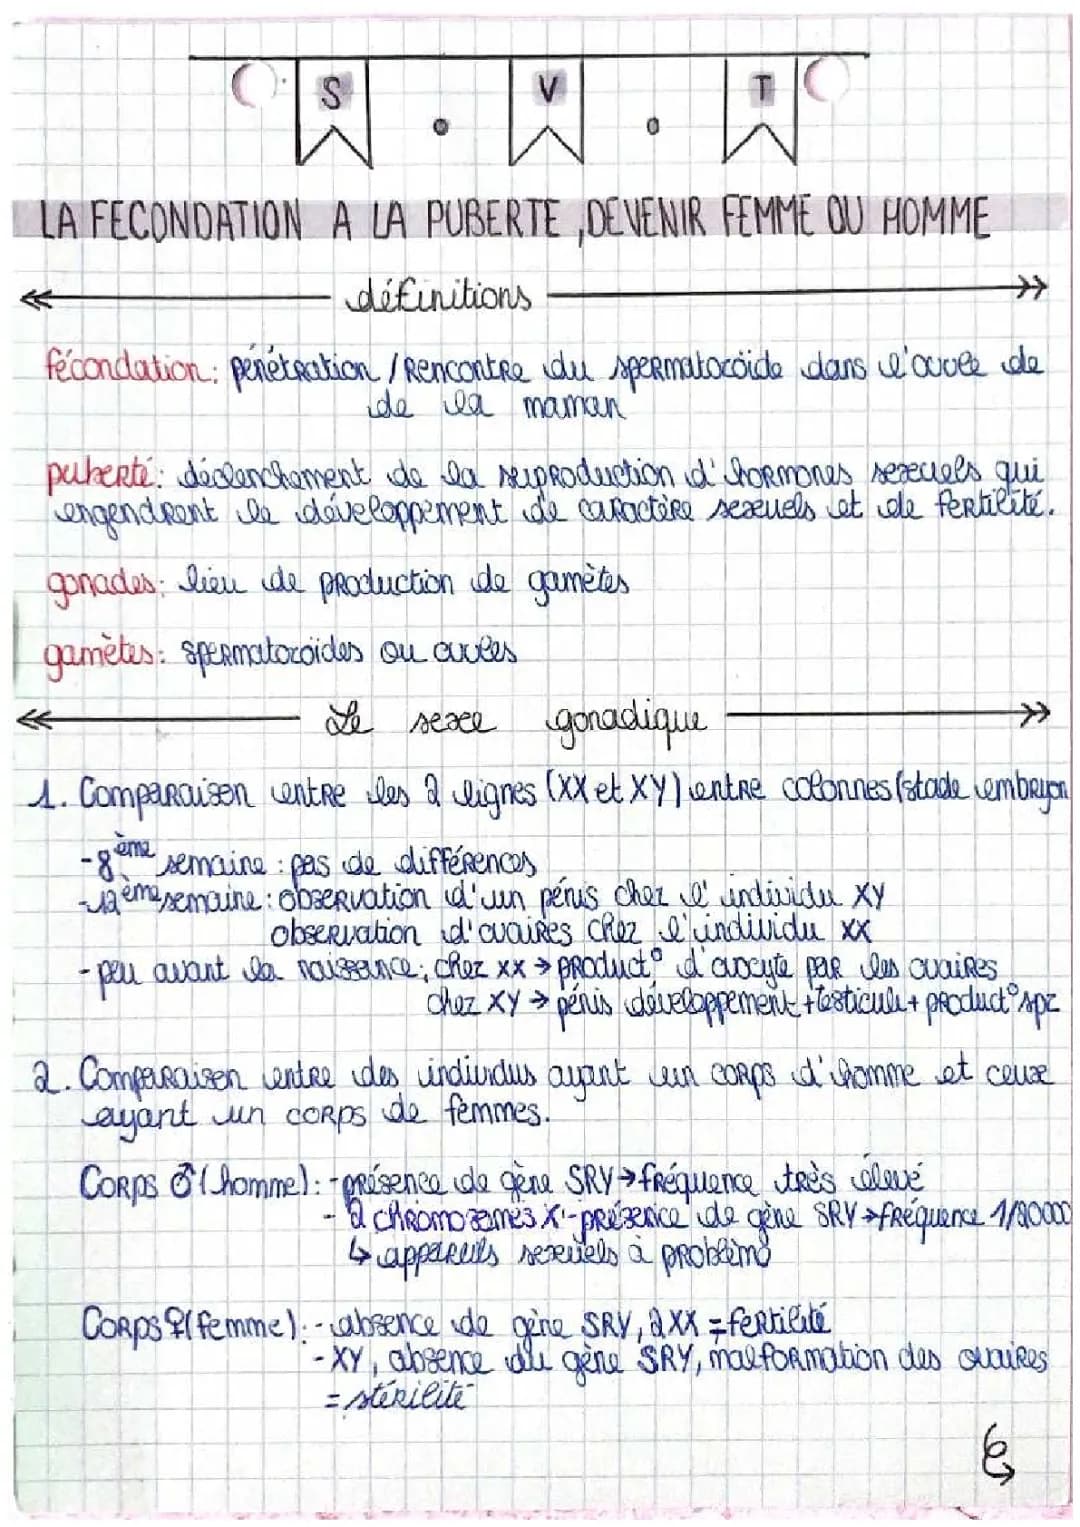 S . V . T
LA FECONDATION A LA PUBERTE, DEVENIR FEMME OU HOMME
définitions
fécondation: pénétration / Rencontre du spermatozoïde dans l'ovule de
de la maman
puberté: déclenchement de la reproduction d'hormones sexuels qui
engendrent le développement de caractère sexuels et de fertilité.
gonades: lieu de production de gamètes
gamètes: spermatozoïdes ou ovules
Le sexe gonadique
1. Comparaison entre les 2 lignes (XX et XY) entre colonnes (stade embryon
-8ème semaine: pas de différences
-12ème semaine: observation d'un pénis chez l'individu XY
observation d'ovaires chez l'individu XX
-peu avant la naissance: chez XX → product° d'ovocyte par les ovaires
chez XY → pénis développement + testicule + product° spz
2. Comparaison entre des individus ayant un corps d'homme et ceux
ayant un corps de femmes.
Corps ♂ (homme): -présence de gène SRY → fréquence très élevé
- 2 chromosomes X -présence de gène SRY → fréquence 1/20000
↳ appareils sexuels à problème
Corps ♀ (femme): -absence de gène SRY, 2XX = fertilité
-XY, absence du gène SRY, malformation des ovaires
= stérilité